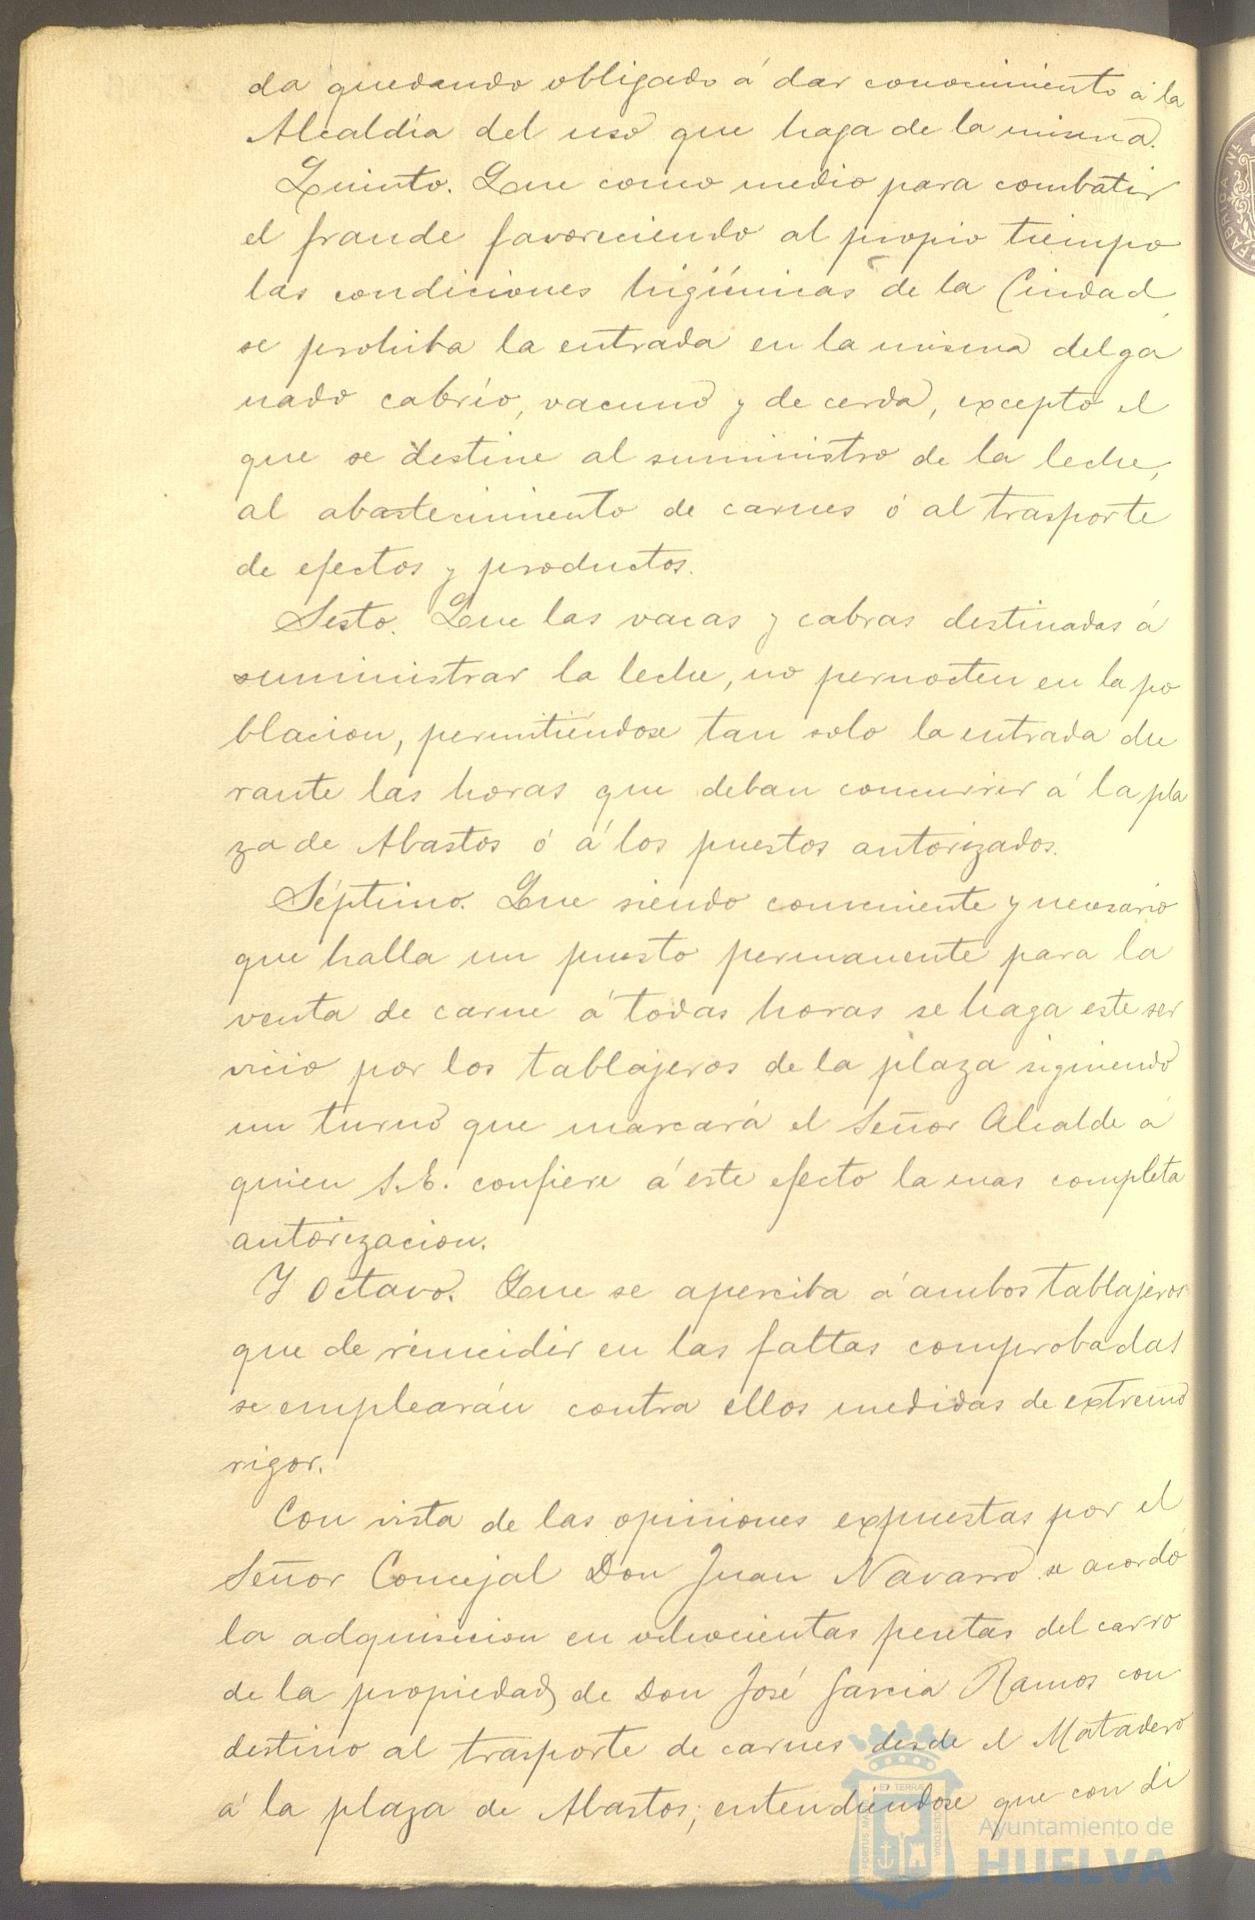 da quedando obligado á dar conocimiento á la
Alcaldía del uso que haga de la misma.
Quinto. Que como medio para combatir
el fraude favoreciendo al propio tiempo
las condiciones higiénicas de la Ciudad
se prohiba la entrada en la misma del ga
nado cabrío, vacuno y de cerda, excepto el
que se destine al suministro de la leche,
al abastecimiento de carnes ó al trasporte
de efectos y productos.
Sesto. Que las vacas y cabras destinadas á
suministrar la leche, no pernocten en la po
blacion, permitiéndose tan solo la entrada du
rante las horas que deban concurrir á la pla
za de Abastos ó á los puestos autorizados.
Séptimo. Que siendo conveniente y necesario
que halla un puesto permanente para la
venta de carne á todas horas se haga este ser
vicio por los tablajeros de la plaza siguiendo
un turno que marcará el Señor Alcalde á
quien S.E. confiere á este efecto la mas completa
autorizacion.
Y Octavo. Que se aperciba á ambos tablajeros
que de reincidir en las faltas comprobadas
se emplearán contra ellos medidas de extremo
rigor.
Con vista de las opiniones expuestas por el
Señor Concejal Don Juan Navarro se acordó
la adquisicion en ochocientas pesetas del carro
de la propiedad de Don José Garcia Ramos con
destino al trasporte de carnes desde el Matadero
á la plaza de Abastos; entendiéndose que con di
Ayuntamiento de
HUELVA